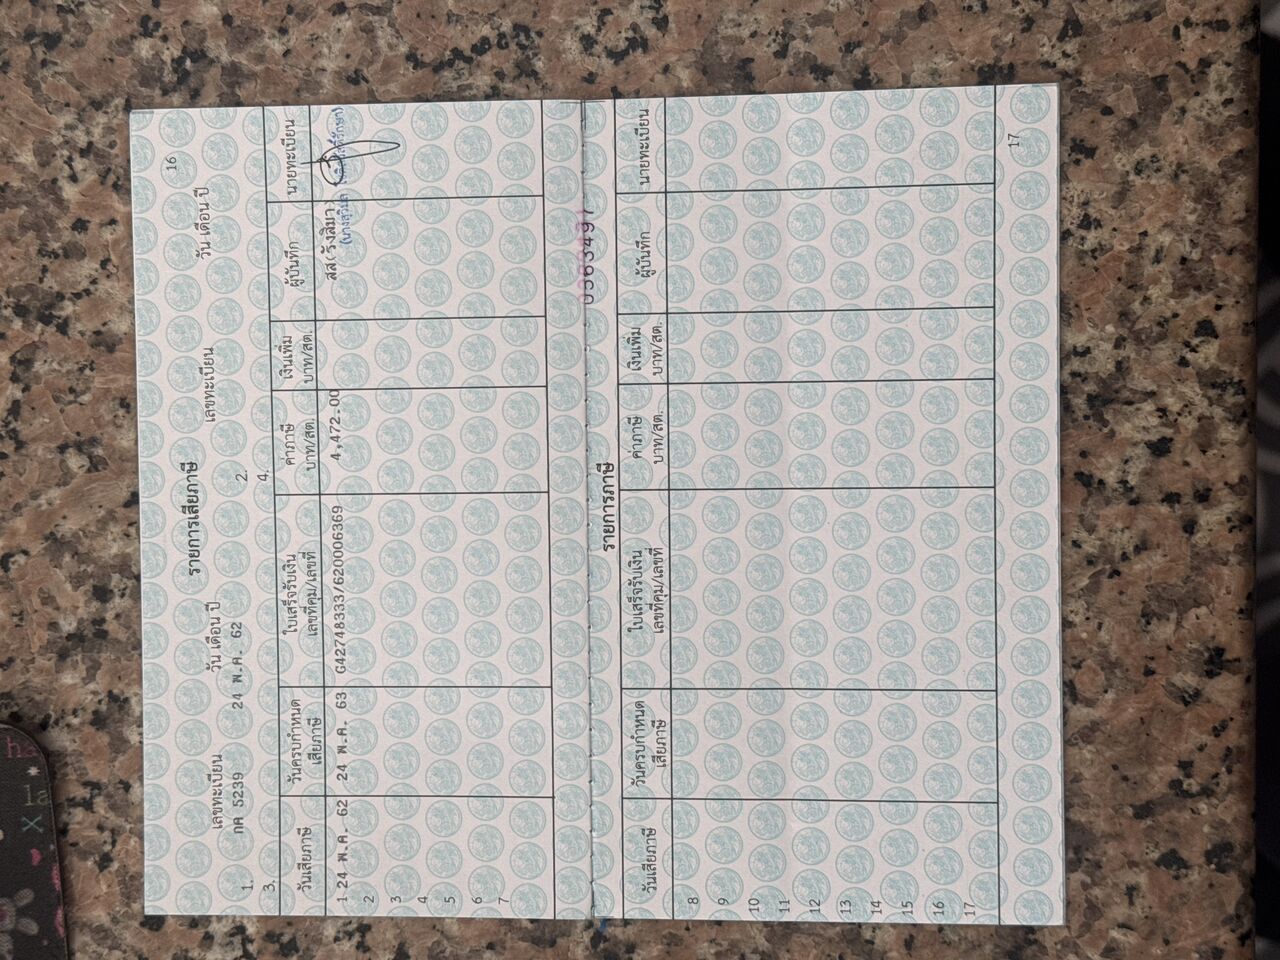 16
รายการเสียภาษี
เลขทะเบียน วัน เดือน ปี เลขทะเบียน วัน เดือน ปี
1. กค 5239 24 พ.ค. 62 2.
3. 4.
วันเสียภาษี วันครบกำหนดเสียภาษี ใบเสร็จรับเงิน เลขที่คุม/เลขที่ ค่าภาษี บาท/สต. เงินเพิ่ม บาท/สต. ผู้บันทึก นายทะเบียน
1 24 พ.ค. 62 24 พ.ค. 63 G42748333/620006369 4,472.00 สส(รังสิมา)
2
3
4
5
6
7
0363497
รายการภาษี
วันเสียภาษี วันครบกำหนดเสียภาษี ใบเสร็จรับเงิน เลขที่คุม/เลขที่ ค่าภาษี บาท/สต. เงินเพิ่ม บาท/สต. ผู้บันทึก นายทะเบียน
8
9
10
11
12
13
14
15
16
17
17